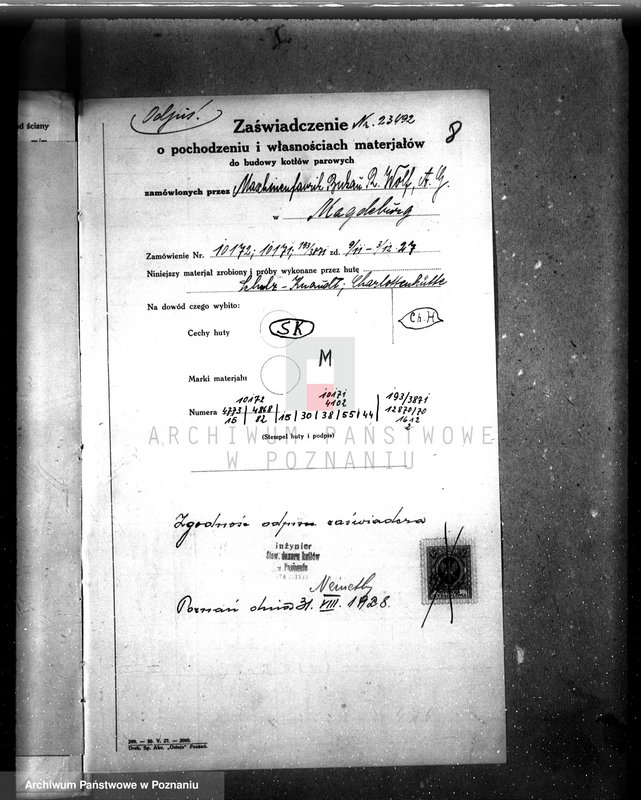 Odpis.
od ściany
Zaświadczenie Nr. 23492
8
o pochodzeniu i własnościach materjałów
do budowy kotłów parowych
zamówionych przez Maschinenfabrik Buckau R. Wolf, A. G.
w Magdeburg
Zamówienie Nr. 10172; 10171; 193/3871 zd. 9/11 – 3/12. 27
Niniejszy materjał zrobiony i próby wykonane przez hutę
Schulz-Knaudt; Charlottenhütte
Na dowód czego wybito:
Cechy huty SK Ch. H
Marki materjału M
10172 10171 193/3871
4102
Numera 4773 | 4868 | 15 | 30 | 38 | 55 | 44 12870/70
15 82 1612
2
(Stempel huty i podpis)
ARCHIWUM PAŃSTWOWE
W POZNANIU
Zgodność odpisu zaświadcza
inżynier
Stow. dozoru kotłów
w Poznaniu
Poznań dnia 31. VIII. 1928.
299. — 30. V. 27. — 3000.
Druk. Sp. Akc. „Ostoja" Poznań.
Archiwum Państwowe w Poznaniu